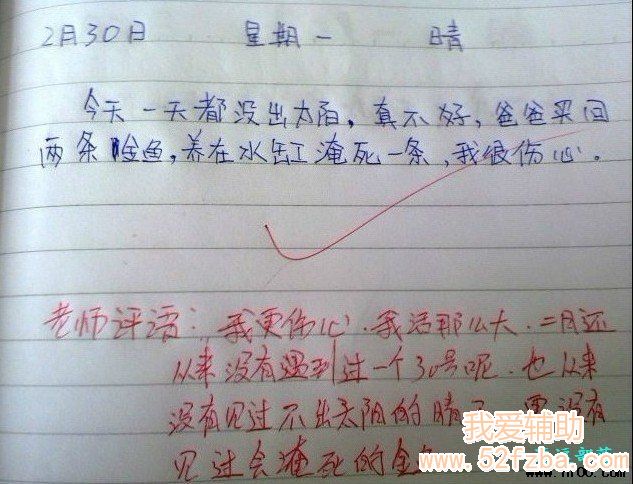 2月30日 星期一 晴
今天一天都没出太阳，真不好，爸爸买回
两条金鱼，养在水缸淹死一条，我很伤心。
老师评语：我更伤心.我活那么大.二月还
从来没有遇到过一个30号呢.也从来
没有见过不出太阳的晴天 更没有
见过会淹死的金
我爱辅助
www.52fzba.com